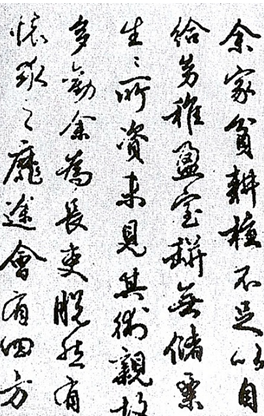 余家貧耕植不足以自
給幼稚盈室缾無儲粟
生〻所資未見其術親故
多勸余為長吏脫然有
懷求之靡途會有四方